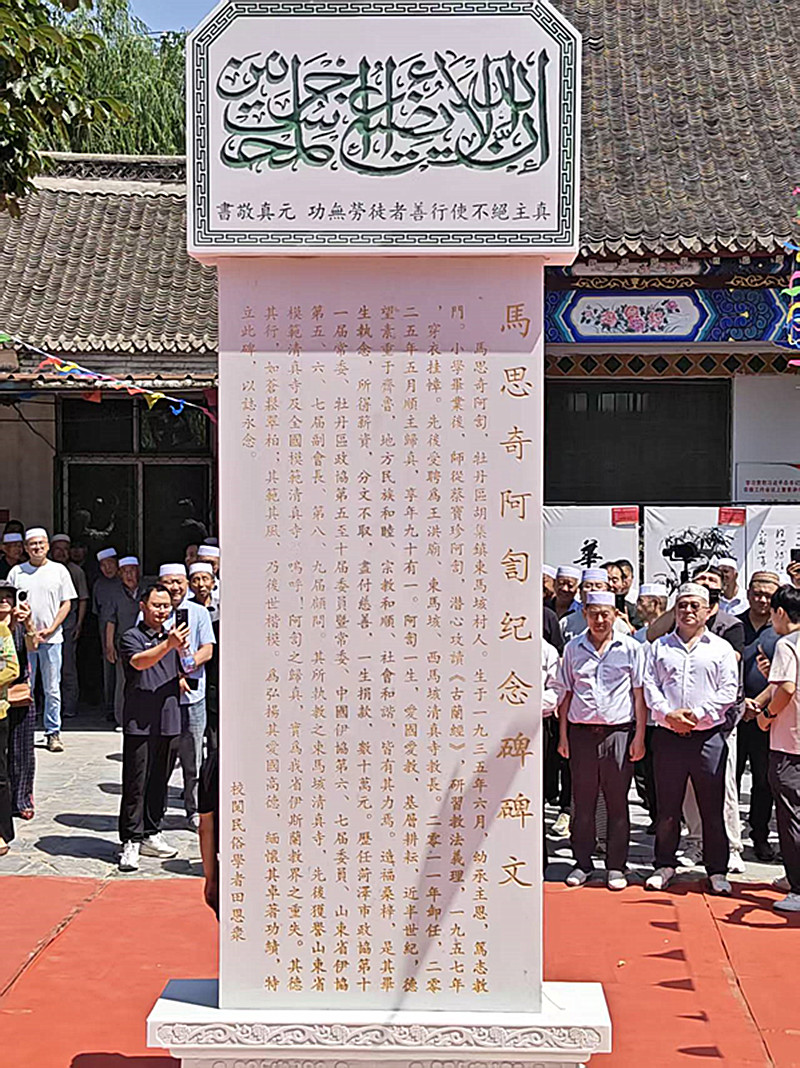 إن الله لا يضيع أجر المحسنين
真主絕不使行善者徒勞無功 元真敬書
馬思奇阿訇纪念碑碑文
馬思奇阿訇，牡丹區胡集鎮東馬垓村人。生于一九三五年六月，幼承主恩，篤志教
門。小學畢業後，師從蔡寶珍阿訇，潛心攻讀《古蘭經》，研習教法義理，一九五七年
，穿衣挂幛。先後受聘爲王洪廟、東馬垓、西馬垓清真寺教長。二零一一年卸任，二零
二五年五月順主歸真，享年九十有一。阿訇一生，愛國愛教，基層耕耘，近半世紀，德
望素重于齊魯，地方民族和睦，宗教和順，社會和諧，皆有其力焉。造福桑梓，是其畢
生執念，所得薪資，分文不取，盡付慈善，一生捐款，數十萬元。歷任菏澤市政協第十
一届常委、牡丹區政協第五至十届委員暨常委、中國伊協第六、七届委員、山東省伊協
第五、六、七届副會長、第八、九届顧問。其所執教之東馬垓清真寺，先後獲譽山東省
模範清真寺及全國模範清真寺。嗚呼！阿訇之歸真，實爲我省伊斯蘭教界之重失。其德
其行，如蒼鬆翠柏；其範其風，乃後世楷模。爲弘揚其愛國高德，緬懷其卓著功績，特
立此碑，以誌永念。
校閱民俗學者田恩衆
華